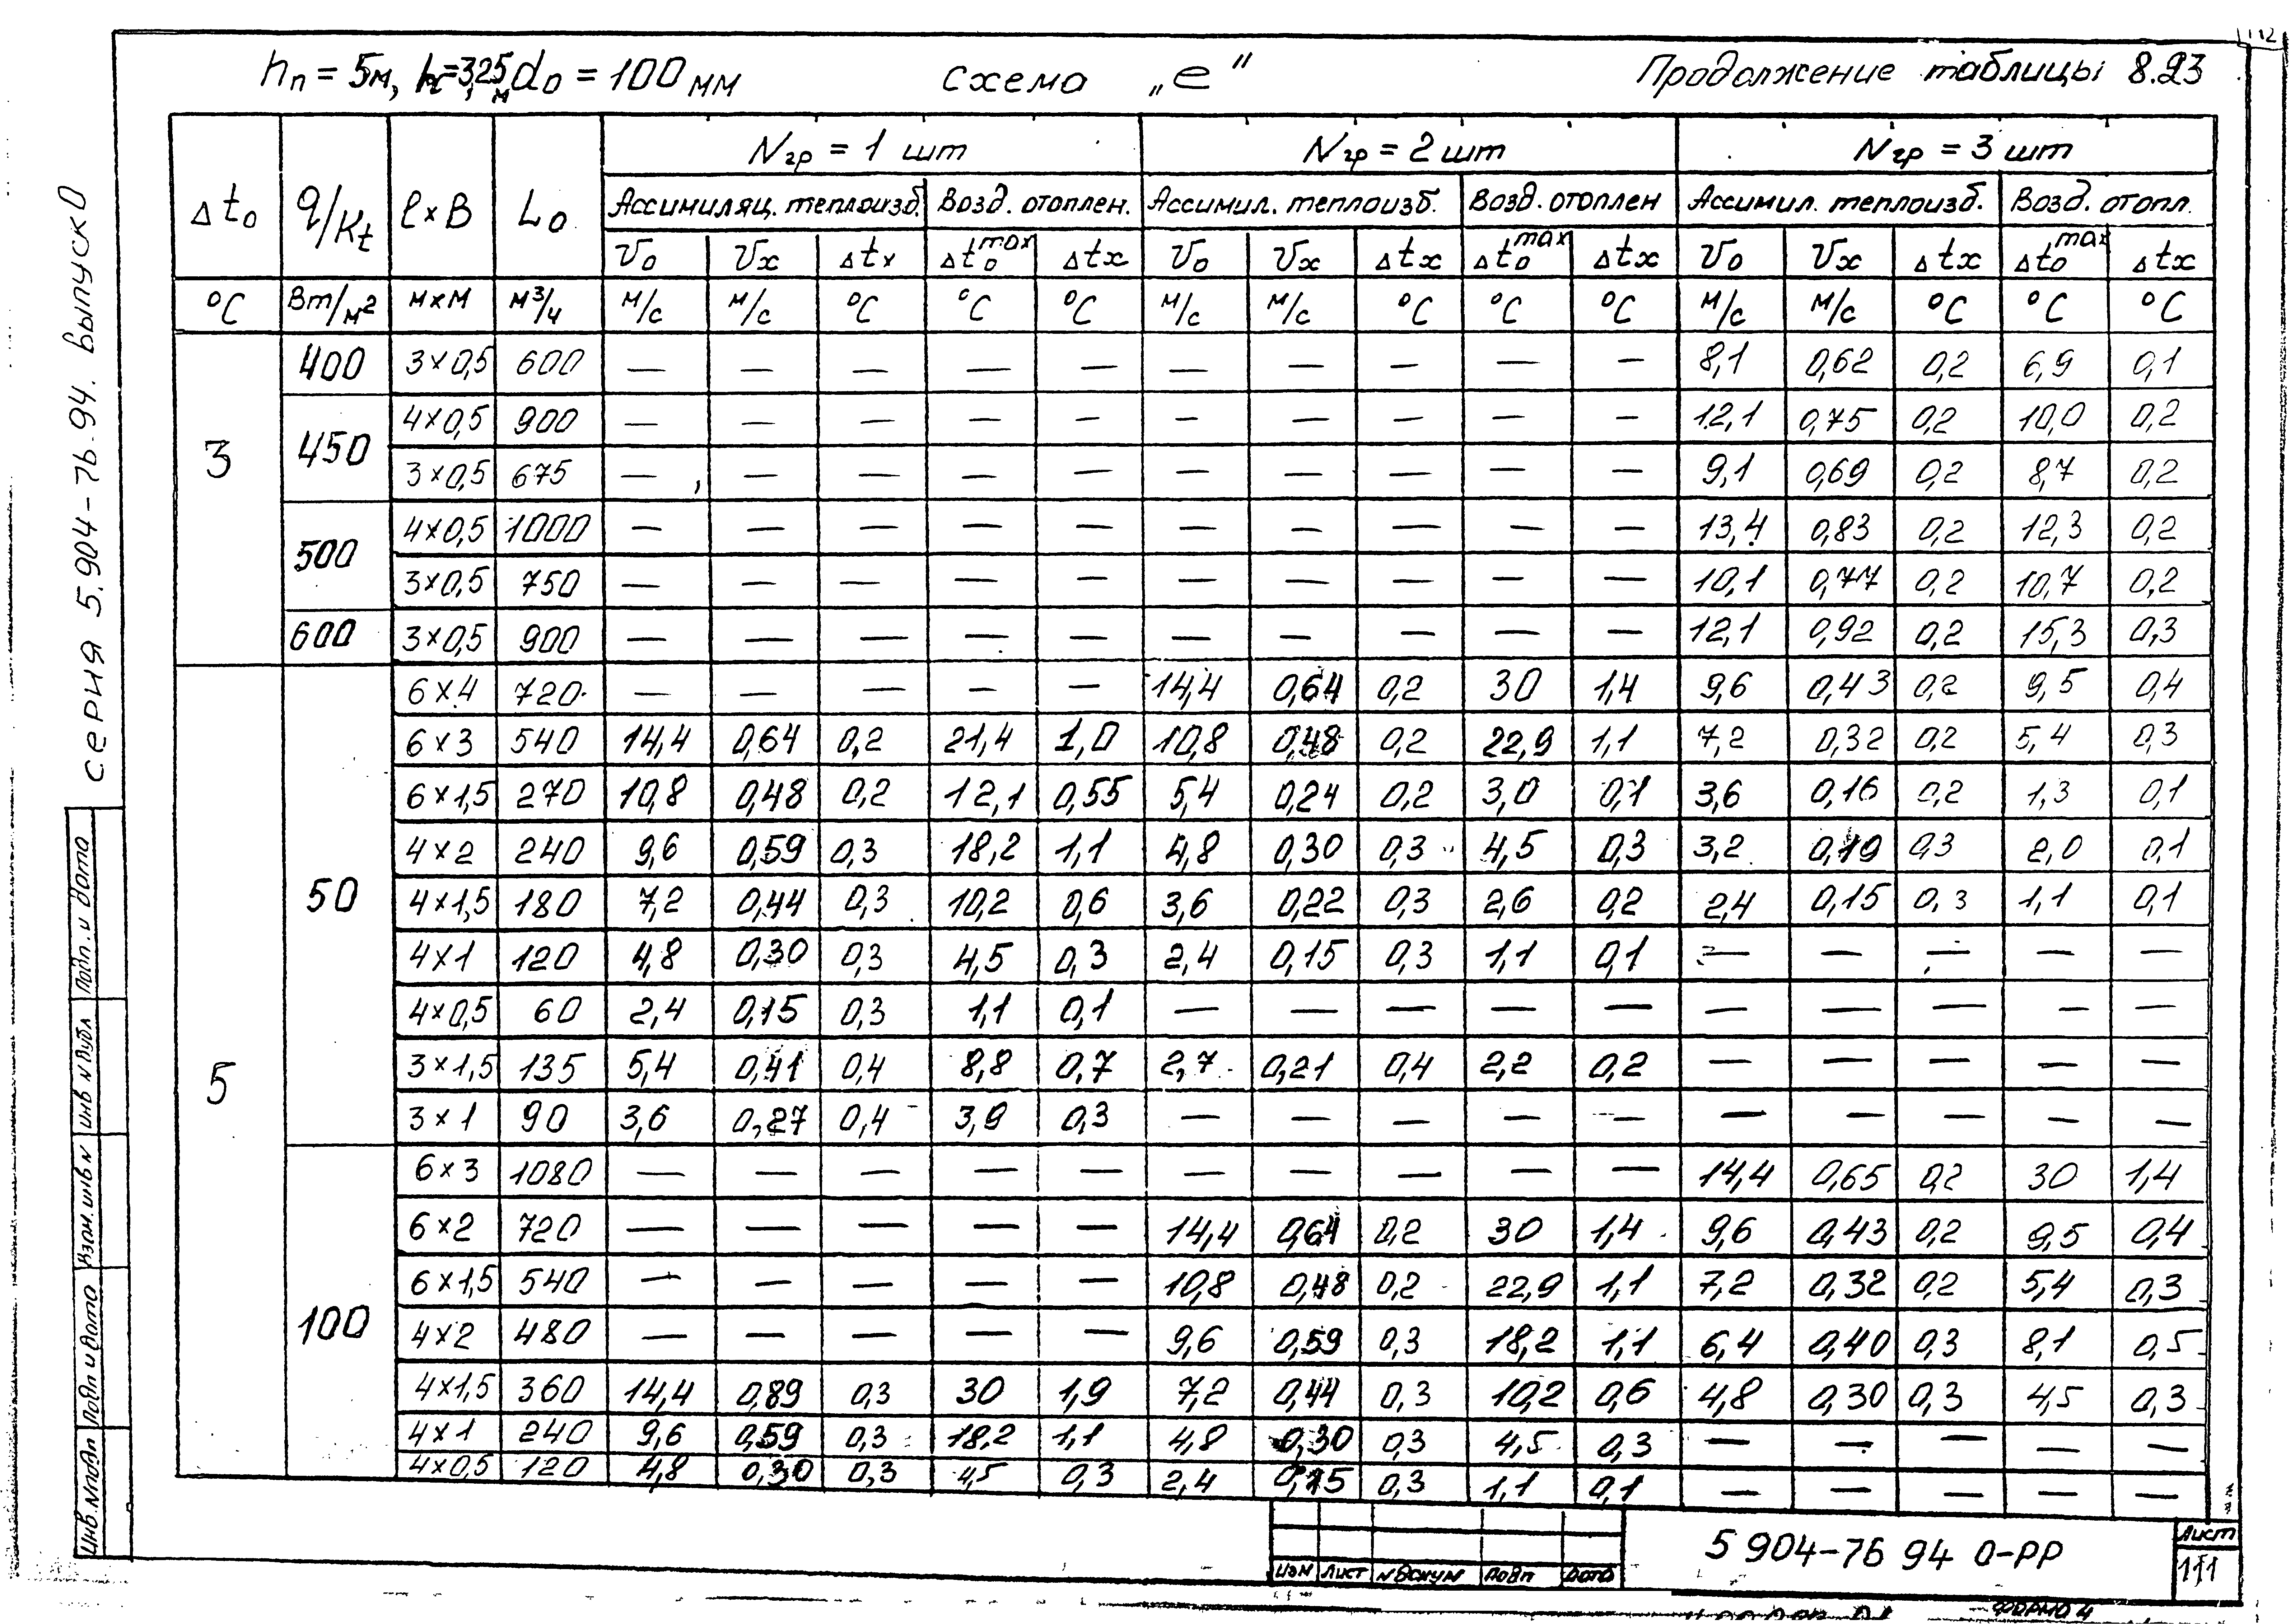 112
hп = 5м, hс=3,25м d₀ = 100 мм схема „е" Продолжение таблицы 8.23
серия 5.904-76.94. выпуск 0
Δt₀ q/Kt l×B L₀ Nгр = 1 шт Nгр = 2 шт Nгр = 3 шт
Ассимиляц. теплоизб. Возд. отоплен. Ассимил. теплоизб. Возд. отоплен Ассимил. теплоизб. Возд. отопл.
V₀ Vx Δtx Δt₀max Δtx V₀ Vx Δtx Δt₀max Δtx V₀ Vx Δtx Δt₀max Δtx
°C Вт/м² м×м м³/ч м/с м/с °C °C °C м/с м/с °C °C °C м/с м/с °C °C °C
3 400 3×0,5 600 — — — — — — — — — — 8,1 0,62 0,2 6,9 0,1
450 4×0,5 900 — — — — — — — — — — 12,1 0,75 0,2 10,0 0,2
3×0,5 675 — — — — — — — — — — 9,1 0,69 0,2 8,7 0,2
500 4×0,5 1000 — — — — — — — — — — 13,4 0,83 0,2 12,3 0,2
3×0,5 750 — — — — — — — — — — 10,1 0,77 0,2 10,7 0,2
600 3×0,5 900 — — — — — — — — — — 12,1 0,92 0,2 15,3 0,3
5 50 6×4 720 — — — — — 14,4 0,64 0,2 30 1,4 9,6 0,43 0,2 9,5 0,4
6×3 540 14,4 0,64 0,2 21,4 1,0 10,8 0,48 0,2 22,9 1,1 7,2 0,32 0,2 5,4 0,3
6×1,5 270 10,8 0,48 0,2 12,1 0,55 5,4 0,24 0,2 3,0 0,1 3,6 0,16 0,2 1,3 0,1
4×2 240 9,6 0,59 0,3 18,2 1,1 4,8 0,30 0,3 4,5 0,3 3,2 0,19 0,3 2,0 0,1
4×1,5 180 7,2 0,44 0,3 10,2 0,6 3,6 0,22 0,3 2,6 0,2 2,4 0,15 0,3 1,1 0,1
4×1 120 4,8 0,30 0,3 4,5 0,3 2,4 0,15 0,3 1,1 0,1 — — — — —
4×0,5 60 2,4 0,15 0,3 1,1 0,1 — — — — — — — — — —
3×1,5 135 5,4 0,41 0,4 8,8 0,7 2,7 0,21 0,4 2,2 0,2 — — — — —
3×1 90 3,6 0,27 0,4 3,9 0,3 — — — — — — — — — —
100 6×3 1080 — — — — — — — — — — 14,4 0,65 0,2 30 1,4
6×2 720 — — — — — 14,4 0,64 0,2 30 1,4 9,6 0,43 0,2 9,5 0,4
6×1,5 540 — — — — — 10,8 0,48 0,2 22,9 1,1 7,2 0,32 0,2 5,4 0,3
4×2 480 — — — — — 9,6 0,59 0,3 18,2 1,1 6,4 0,40 0,3 8,1 0,5
4×1,5 360 14,4 0,89 0,3 30 1,9 7,2 0,44 0,3 10,2 0,6 4,8 0,30 0,3 4,5 0,3
4×1 240 9,6 0,59 0,3 18,2 1,1 4,8 0,30 0,3 4,5 0,3 — — — — —
4×0,5 120 4,8 0,30 0,3 4,5 0,3 2,4 0,15 0,3 1,1 0,1 — — — — —
Инв. N подл Подп и дата Взам. инв N инв N дубл Подп. и дата
Изм Лист N докум Подп Дата
5 904-76 94 0-РР
Лист
111
ФОРМА 4